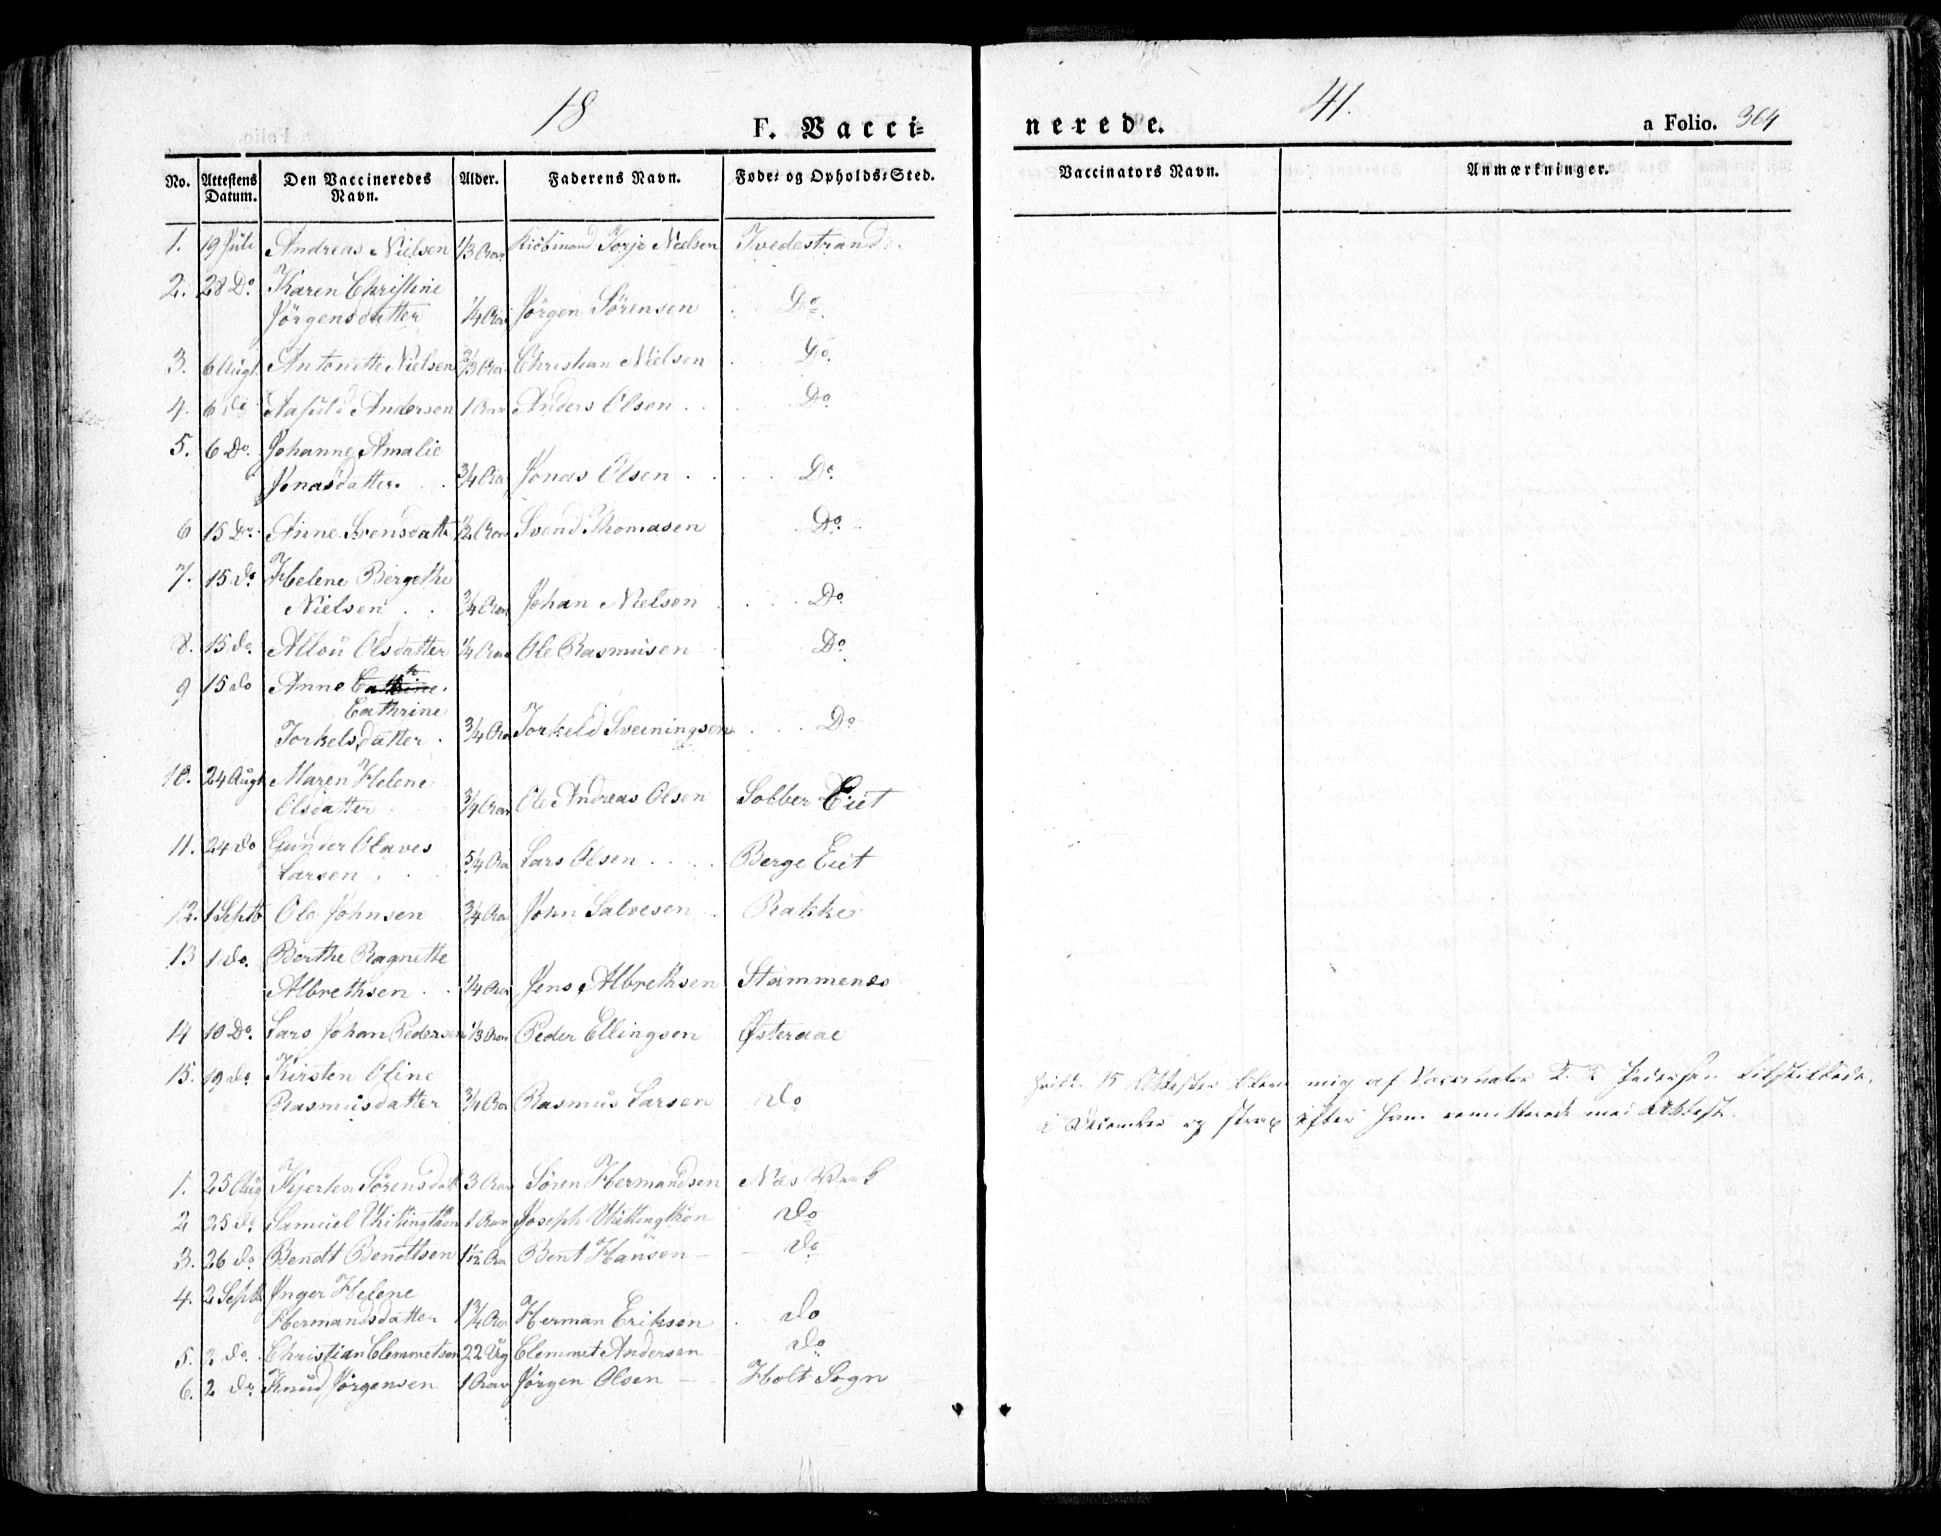 18
F. Vacci=
No. Attestens Datum. Den Vaccineredes Navn. Alder. Faderens Navn. Føde= og Opholds=Sted.
1. 19 Juli Andreas Nielsen 1/3 Aar Kiöbmand Torje Nielsen Tvedestrand
2. 28 Do. Karen Christine
Jörgensdatter 1/4 Aar Jörgen Sörensen Do.
3. 6 Augt. Antonette Nielsen 2/3 Aar Christian Nielsen Do.
4. 6 do Andersen 1 Aar Anders Olsen Do.
5. 6 Do. Johanne Amalie
Jonasdatter. 3/4 Aar Jonas Olsen Do.
6 15 Do. Anne Svensdattr 1/2 Aar Svend Thomasen Do.
7. 15 do. Helene Bergethe
Nielsen 3/4 Aar Johan Nielsen Do.
8. 15 do. Olsdatter 1/4 Aar Ole Rasmusen Do.
9 15 do Anne
Cathrine
Torkelsdatter 3/4 Aar Torkeld Sveiningsen Do.
10. 24 Augt Maren Helene
Olsdatter 3/4 Aar Ole Andreas Olsen Solber Eiet
11. 24 do Gunder Olaves
Larsen 5/4 Aar Lars Olsen Berge Eiet
12. 1 Septb Ole Johnsen 3/4 Aar John Salvesen Rakke
13 1 do. Berthe Ragnette
Albrethsen 1/4 Aar Jens Albrethsen Stammenes
14 10 Do. Lars Johan Pedersen 1/3 Aar Peder Ellingsen Østeraae
15. 19 do. Kirsten Oline
Rasmusdatter 3/4 Aar Rasmus Larsen do
1. 25 Aug Kjersten Sörensdat 3 Aar Sören Hermandsen Næs Værk
2 25 do Samuel Whitingthon 1 Aar Joseph Whittingthon do
3. 26 do Bendt Bendtsen 1 1/2 Aar Bent Hansen do
4. 2 Septb Inger Helene
Hermandsdatter 1 3/4 Aar Herman Eriksen do
5. 2 do. Christian Clemmetsen 22 Ug Clemmet Andersen do
6. 2 do Knud Jörgensen 1 Aar Jörgen Olsen Holt Sogn
41.
nerede.
a Folio. 364
Vaccinators Navn. Anmærkninger.
15 Attester mig af Vaccinateur Pedersen tilstillede
i December og strax efter ham remitterede med Attest.